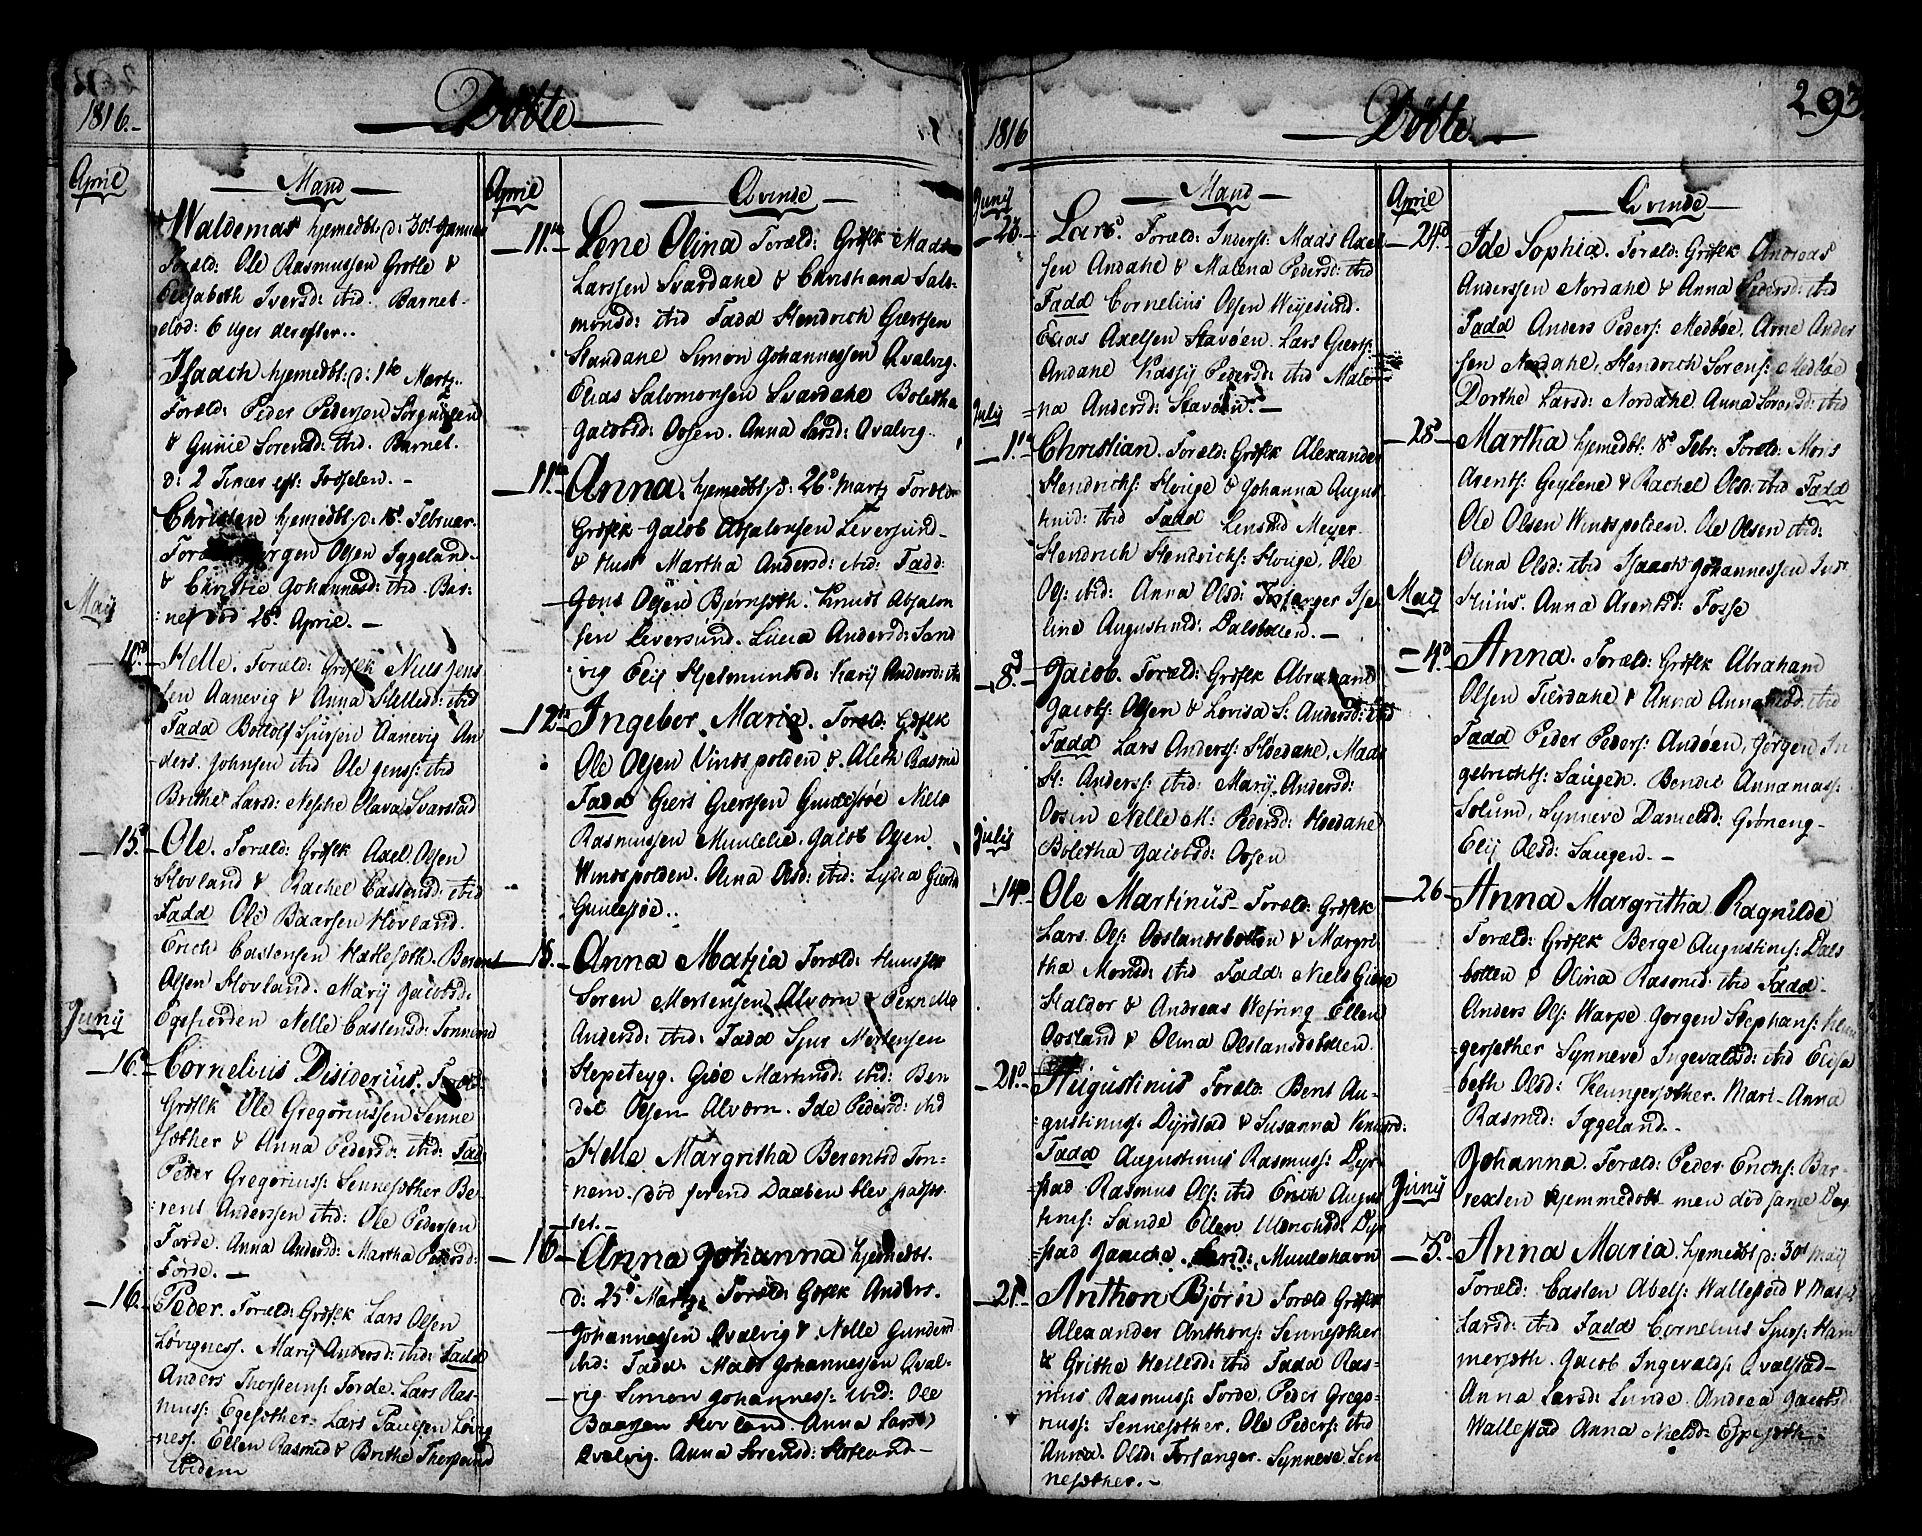 1816.
Döbte
April
Mand
Waldemar hjemedbt: d: 30t Januar
Foræld: Ole Rasmussen Grotle &
Elisabeth Iversd: ibid. Barnet
död: 6 Uger derefter..
Isaach hjemedbt: d: 1te Martz..
Foræld: Peder Pedersen
& Gunie Sorensd: ibid. Barnet
d: 2 Timer eft: Fødselen. -
Christen hjemedbt. d: 18d Februar.
Olsen Iggeland
& Christie Johannesd: ibid. Bar-
net död 28d April. -
Maij
Helle. Foræld: Grosfk Niels Jens
sen Aanevig & Anna Helled: ibid
Fadd Bottolf Sjursen Aanevig An
ders Johnsen ibid Ole Jenss: ibid
Brithe Larsd: Nesche Olava Svarstad
15d Ole. Foræld: Grosfk Axel Olsen
Hovland & Rachel Castensd: ibid
Fadd Ole Baarsen Hovland.
Erich Castensen Berent
Olsen Hovland. Marij Jacobsd:
Egefierden Nelle Castensd: Tonnem
Junij
16d Cornelius Disiderius. Foræld:
Grosfk Ole Gregoriussen Senne
sæther & Anna Pedersd: ibid: Fad:
Peder Gregoriuss: Sennesæther Be-
rent Anderssen ibid: Ole Pedersen
Förde. Anna Andersd: Martha Pedersd:
Förde. -
16. Peder. Foræld: Grosfk Lars Olsen
Marij Andersd: ibid: Fadd
Anders Thorsteins: Förde. Lars Ras-
muss: Egesæther. Lars Paulsen
Ellen Rasmd & Brithe Thorsteind
ibidem
April
Qvinde
11te Lene Olina Foræld: Grosfk Mads
Larssen Svardahl & Christiana Salo-
monsd: ibid Fadd Hendrich Giertsen
Simon Johannessen Qvalvig.
Elias Salomonsen Svardahl Boletha
Jacobsd: Ossen. Anna Larsd: Qvalvig.
11te Anna. hjemedbt. d: 26d Martz Foræld
Grosfk Jacob Absalonsen Liversund
& Hust Martha Andersd: ibid: Fadd:
Jens Olsen Knudt Absalon
sen Liversund. Lucia Andersd: Sand
vig Elij Hjelmundsd: Karij Andersd: ib
12te Ingeber Maria. Foræld: Grosfk
Ole Olsen Vindspolden & Aleth Rasmd
Fadd Giert Giertsen Niels
Rasmussen Jacob Olsen
Windspolden. Olina Olsd: ibid: Lydea Giertsd
18. Anna Matzia Foræld: Husfolk
Soren Mortensen Alvorn & Pernille
Andersd: ibid: Fadd Sjur Mortensen
Hepeteyg. Giöe Martinsd: ibid: Ben
det Olsen Alvorn. Ide Pedersd: ibid
Helle Margritha Berentsd Ton-
nem. död forend Daaben blev
tet. -
16 Anna Johanna hjemedbt.
d: 25d Martz. Foræld: Grosfk Anders.
Johannessen Qvalvig & Nelle Gundersd
ibid: Fadd. Mads Johannessen Qval-
vig Simon Johanness: ibid: Ole
Baarsen Hovland Anna Larsd:
Qvalvig. Anna Sorensd: Hovland -
293.
1816
Döbte
Junij
Mand
23. Lars. Foræld: Inders: Mads Axel
sen Andahl & Malena Pedersd: ibid
Fadd Cornelius Olsen
Elias Axelsen Stavöen. Lars Gierts:
Andahl Pedersd: ibid Male-
na Andersd: Stavöen. -
Julij
1te Christian. Foræld: Grosfk Alexander
Hendrichs: Houge & Johanna August
inid: ibid Fadd Lensmd Meyer.
Hendrich Hendrichs: Houge. Ole
Ols: ibid: Anna Olsd: Forfanger Ise
line Augustinid: Dalsbotten. -
8d Jacob. Foræld: Grosfk Abraham
Jacobs: Ossen & Lovisa S: Andersd: ibid
Fadd Lars Anderss: Mads
H: Anderss: ibid: Marij Andersd:
Ossen Nelle M: Pedersd:
Boletha Jacobsd: Ossen
Julij
14d Ole Martinus. Foræld: Grosfk
Lars Ols: Oslandsbotten & Margri
tha Monsd: ibid Fadd: Niels
Haldor & Andreas Hofring Ellen
Osland & Olina Oslandsbotten.
21d Augustinus Foræld: Bent Au-
gustinus: Dyrstad & Susanna
Fadd Augustinus Rasmuss: Dyr-
stad Rasmus Ols: ibid Erich August
inus: Sande Ellen Ulrichsd: Dyr
stad Larsd:
21d Anthon Björn Foræld Grosfk
Alexander Anthons: Sennesæther
& Grithe Helled: ibid Fadd Ras-
mus Rasmuss: Förde. Peder Grego-
riuss: Sennesæther. Ole Peders: ibid
Anna Olsd: Forfanger. Synneve Sen
nesæther. -
Döbte
April
Qvinde
24d Ide Sophia. Foræld: Grosfk Andreas
Anderssen Nordahl & Anna Pedersd: ibid
Fadd Anders Peders: Medböe, Arne Ander
sen Nordahl, Hendrich Sorens: Medböe
Dorthe Larsd: Nordahl. Anna Sorensd: ibid
28d Martha hjemedbt. 18d Febr. Foræld: Mons
Arents: Geylene & Rachel Olsd: ibid Fadd
Ole Olsen Windspolden. Ole Olsen ibid:
Olina Olsd: ibid Isaach Johannessen Indre
Huus. Anna Arentsd: Fosse
Maij
4d Anna. Foræld: Grosfk Abraham
Olsen Tierdahl & Anna ibid
Fadd Peder Peders: Andöen, Jörgen In
gebrichts: Saugen. Bendic
Solund, Synneve Danielsd: Gröneng-
Elij Olsd: Saugen. -
26 Anna Margritha Ragnilde
Foræld: Grosfk Berge Augustins: Dals
botten & Olina Rasmd: ibid Fadd.
Anders Ols: Warpe. Jorgen Stephans: Klun
gersæther Synneve Ingevaldsd: ibid Elisa
beth Olsd: Klungersæther. Mari-Anna
Rasmd: Iggeland. -
Johanna. Foræld: Peder Erichs: Bar-
hjemmedöbt men död same Dag
Junij
3d Anna Maria hjemedbt d: 30d Maij
Foræld: Casten Abels: Wallestad &
Larsd: ibid Fadd Cornelius Sjurs: Ham
mersæth. Jacob Ingevalds: Qvalstad
Anna Larsd: Lunde. Andrea Jacobsd:
Wallestad Anna Nielsd: Espesæth.